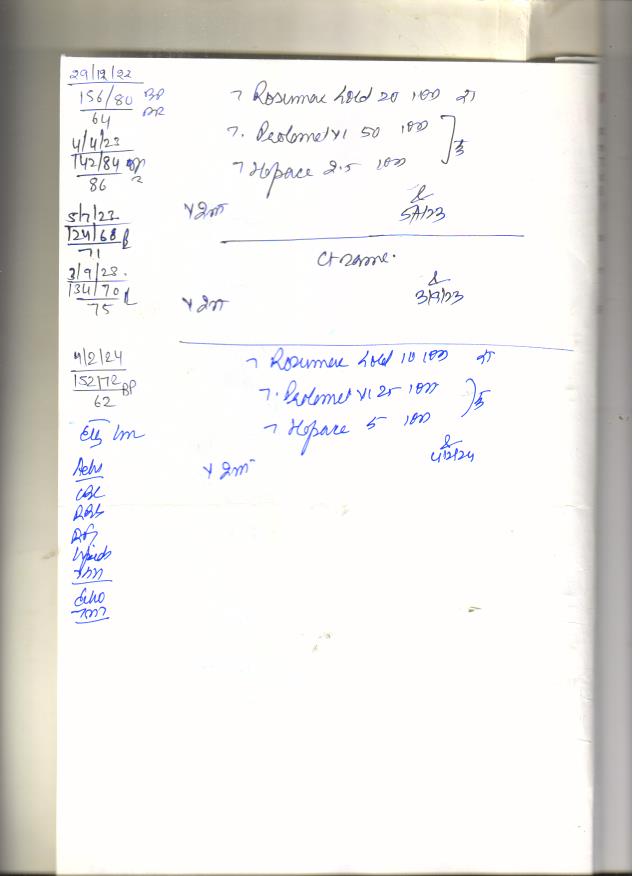 29/12/22
156/80 BP
64 PR
7 Rosumac Gold 20 1OD रा
7. Prolomet XL 50 1OD
7 Hopace 2.5 1OD
4/4/23
142/84 BP
86
5/7/23
124/68
71
x 2m
5/7/23
Ct same.
3/9/23.
134/70
75
x 2m
3/9/23
4/2/24
152/72 BP
62
7 Rosumac Gold 10 1OD रा
7. Prolomet XL 25 1OD
7 Hopace 5 1OD
4/2/24
x 2m
Adv
CBC
RBS
RFT
Lipids
TSH
Echo
TMT